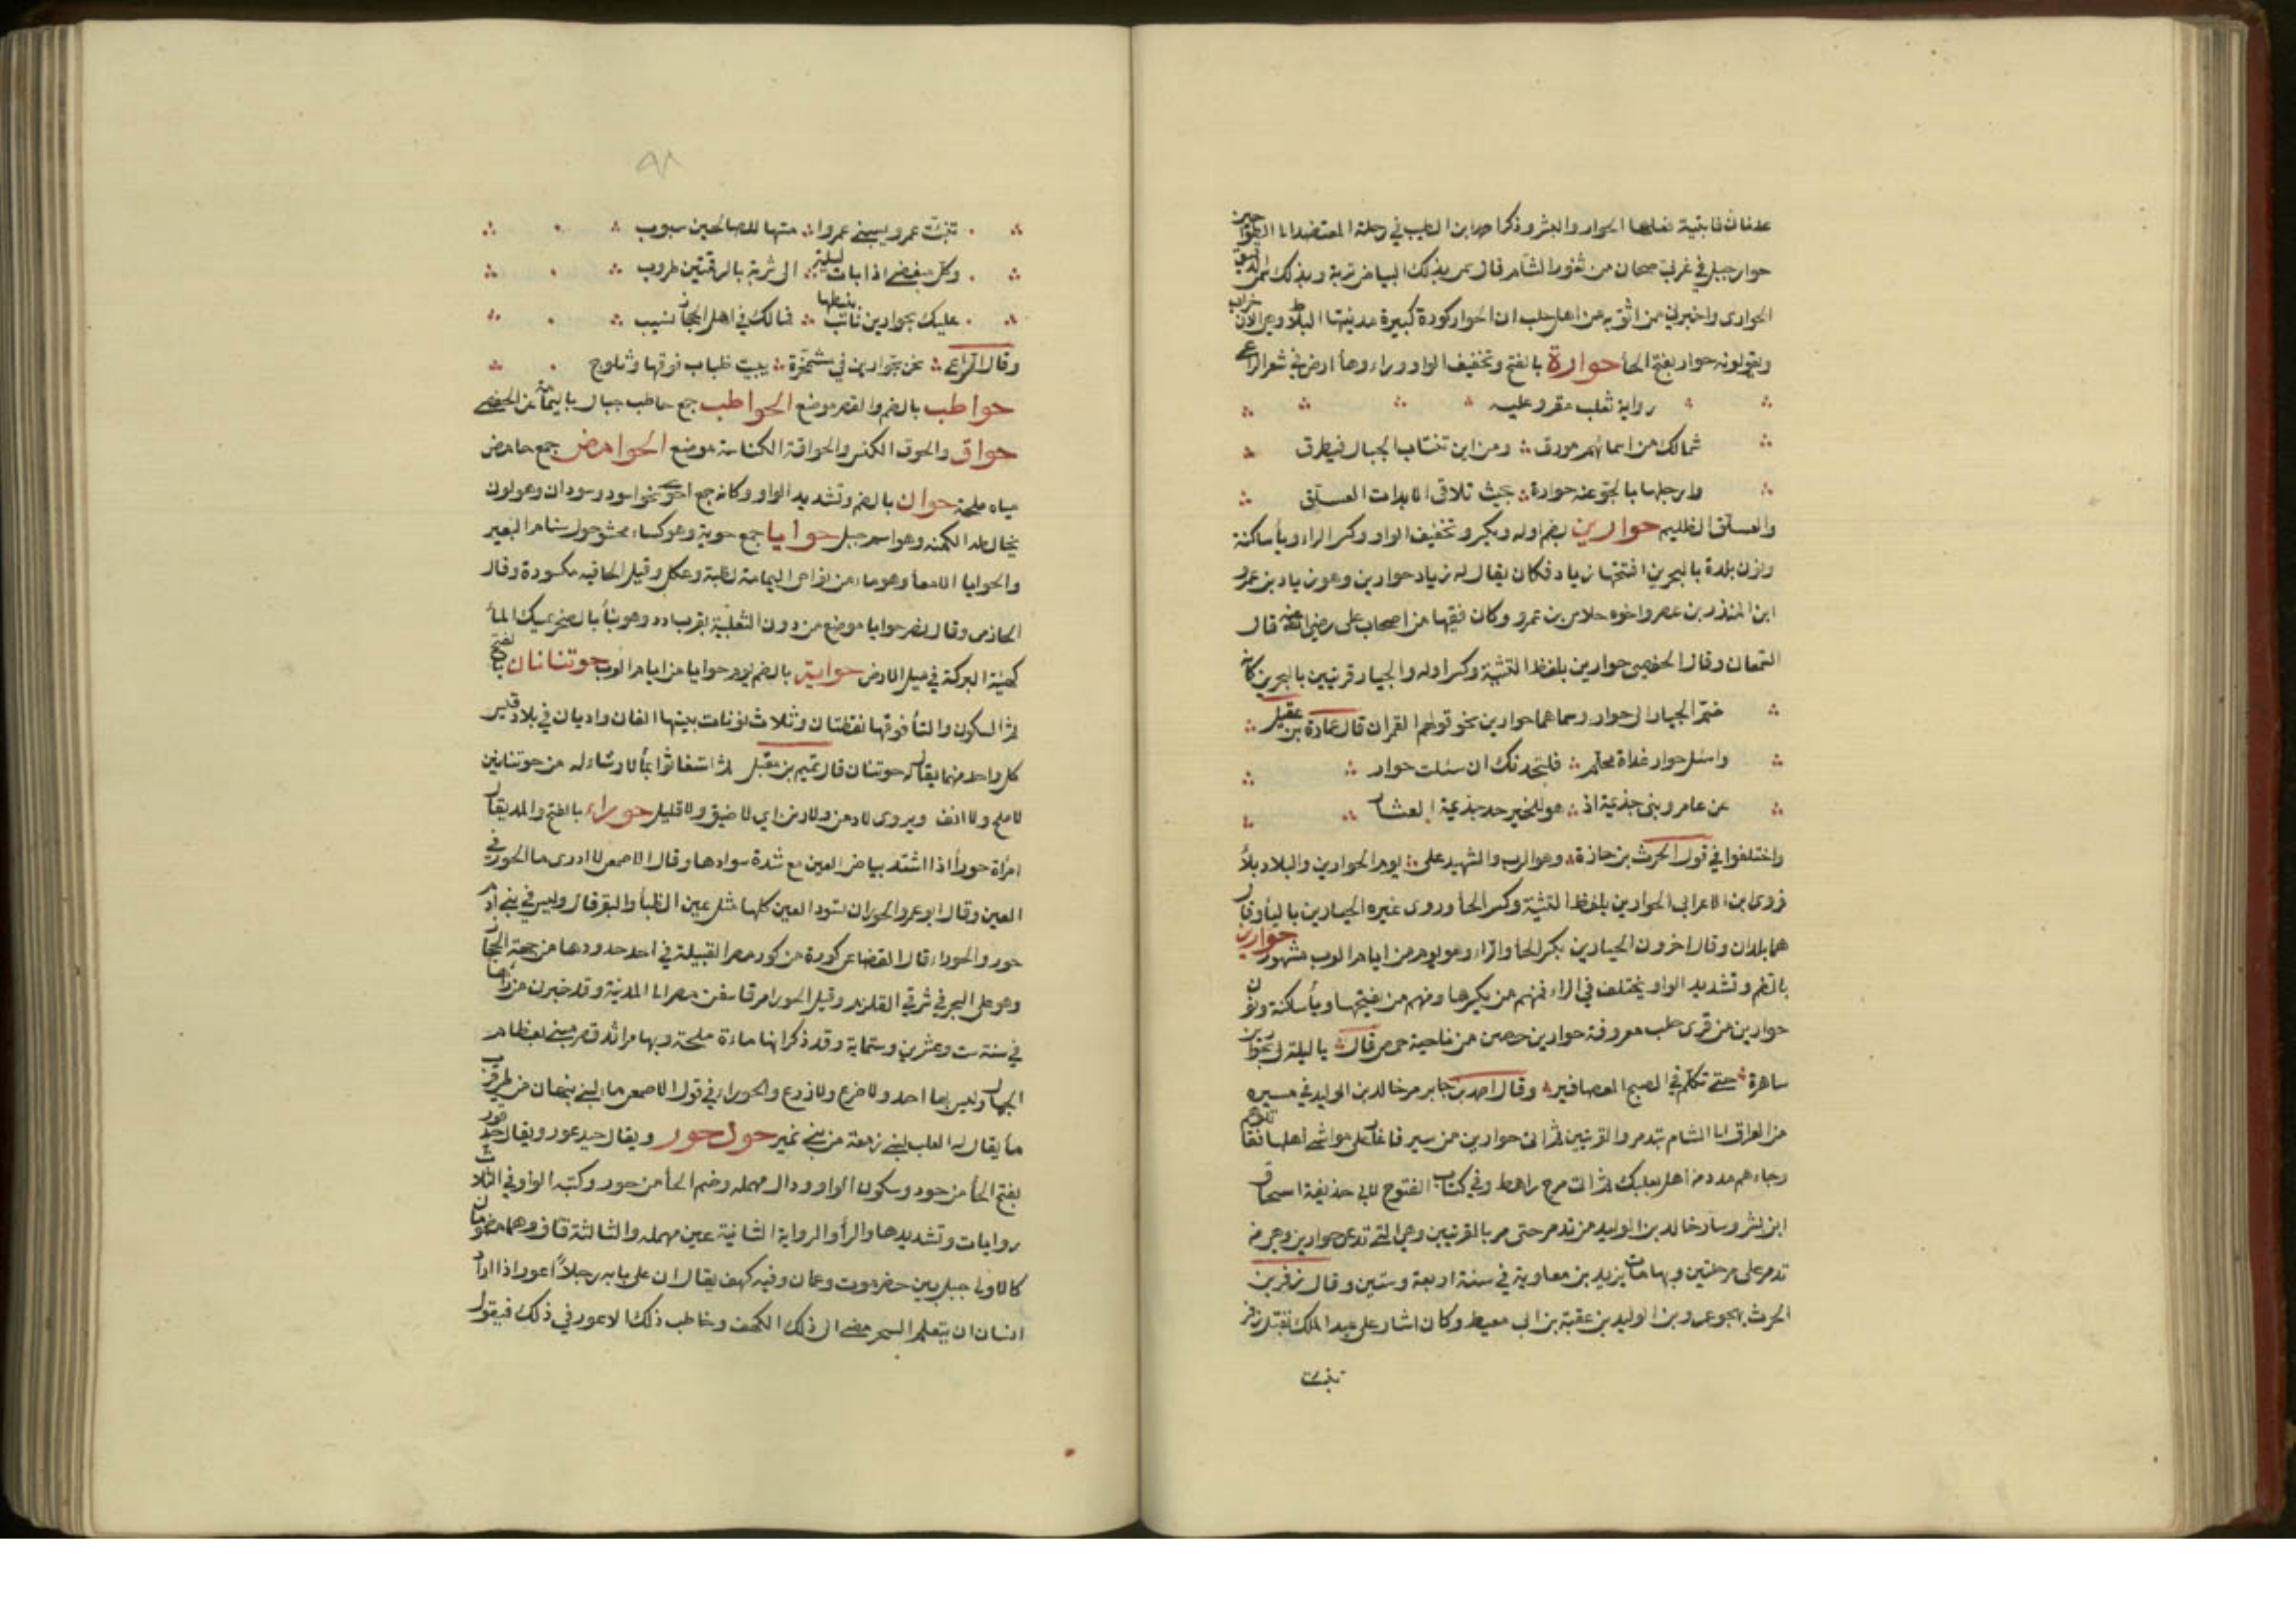 حوار جبل في غربي صحان من ثغور الشام قال يمر بذلك البياض تربة وبذلك سمي
الحوارى واخبرني من اثق به من اهل حلب ان الحوار كورة كبيرة مدينتها البلاط وهي الان خراب
ويقولونه حوار بفتح الحأ حوارة بالفتح وتخفيف الواو وراء وهأ ارض في شعر الراعي
رواية ثعلب مقروء عليه
شمالك من اسمائهم مورق ومن اين تنتاب الجبال فيطرق
وارحلها بالجو عند حوارة بحيث تلاقى الابدات العسلق
والعسلق الظليم حوارين بضم اوله ويكسر وتخفيف الواو وكسر الراء ويأ ساكنة
ونون بلدة بالبحرين افتتحها زياد فكان يقال له زياد حوارين وهو زياد بن عمرو
ابن المنذر بن عصر واخوه حلاس بن عمرو وكان فقيها من اصحاب على رضي الله عنه قال
وقال الحفصي حوارين بلفظ التثنية وكسر اوله والجيار قريتين بالبحرين كانه
ضم الجيار الى حوار وسماهما حوارين نحو قولهم القمران قال عمارة بن عقيل
واسئل حوار غداة محلم فلتخبرنك ان سئلت حوار
عن عامر وبني جذيمة اذ هو للخير حد جذيمة العثار
واختلفوا في قول الحرث بن حلزة وهو الرب والشهيد على يوم الحوارين والبلاد بلاء
فروى ابن الاعرابي الحوارين بلفظ التثنية وكسر الحأ وروى غيره الحيارين باليأ وقال
هما بلدان وقال اخرون الحيارين بكسر الحأ والرأ وهو يوم من ايام العرب مشهور حوارين
بالضم وتشديد الواو يختلف في الراء فمنهم من يكسرها ومنهم من يفتحها ويأ ساكنة ونون
حوارين من قرى حلب معروفة حوارين حصن من ناحية حمص قال يا ليلة لي بحوارين
ساهرة حتى تكلم في الصبح العصافير وقال احمد بن جابر مر خالد بن الوليد في مسيره
من العراق الى الشام بتدمر والقريتين ثم اتى حوارين من سير فاغار على مواشي اهلها فقاتلوهم
وجاءهم مدد من اهل بعلبك ثم اتى مرج راهط وفي كتاب الفتوح لابي حذيفة اسحاق
ابن بشر وسار خالد بن الوليد من تدمر حتى مر بالقريتين وهي التي تدعى حوارين وهي من
تدمر على مرحلتين وبها مات يزيد بن معاوية في سنة اربعة وستين وقال زفر بن
الحرث يهجو عمرو بن الوليد بن عقبة بن ابي معيط وكان اشار على عبد الملك بقتل زفر
نبئت
٩٨
نبئت عمرو يسبني عمروا متها للصالحين سبوب
وكل معيطي اذا بات ليلة الى شربة بالرقتين طروب
عليك بحوارين نائب بنبطها فمالك في اهل الحجاز نسيب
وقال الراعي نحن بحوارين في مشمخرة يبيت ظباب فوقها وثلوج
حواطب بالضم والقصر موضع الحواطب جمع حاطب جبال باليمامة عن الحفصي
حواق والحوق الكنس والحواقة الكناسة موضع الحوامض جمع حامض
مياه ملحة حوان بالضم وتشديد الواو وكانه جمع احوى نحو اسود وسودان
وهو اسم جبل حوايا جمع حوية وهو كساء محشو حول سنام البعير
والحوايا الامعأ وهو ماء من نواحي اليمامة لضبة وعكل وقيل الحافيه مكسورة وقال
الحازمي وقال نصر حوايا موضع من دون الثعلبية بقرب ادد وهو بنأ بالصخر يمسك المأ
كهيئة البركة في مسيل الارض حواية بالضم يوم حوايا من ايام العرب حوتنانان بالفتح
ثم السكون والتأ فوقها نقطتان وثلاث نونات بينها الفان واديان في بلاد قيس
كل واحد منهما يقال له حوتنان قال تميم بن مقبل ثم استغاثوا بمأ لا رشاء له من حوتنانين
لا ملح ولا انف ويروى لا دمن ولا زنن اي لا ضيق ولا قليل حوراء بالفتح والمد يقال
امرأة حورأ اذا اشتد بياض العين مع شدة سوادها وقال الاصمعي لا ادري ما الحور في
العين وقال ابو عمرو الحور ان تسود العين كلها مثل عين الظبأ والبقر قال وليس في بني ادم
حور والحوراء قال القضاعي كورة من كور مصر القبيلة في احد حدودها من جهة الحجاز
وهو على البحر في شرقي القلزم وقيل الحورا مرفا سفن مصر الى المدينة وقد خبرني من راها
في سنة ست وعشرين وستماية وقد ذكر انها ماءة ملحة وبها اثر قصر مبني بعظام
الجمال وليس بها احد ولا ضرع ولا زرع والحوراء في قول الاصمعي ماء لبني نبهان من طي قرب
مأ يقال له القلب لبني ربيعة من بني نمير حول حور ويقال حيد عور ويقال حيد قور
بفتح الحأ من حود وسكون الواو ودال مهملة وضم الحأ من حور وكتبه الواو في الثلاث
روايات وتشديدها والرأ والرواية الثانية عين مهملة والثالثة قاف وهما مضمومان
كالاولى جبل بين حضرموت وعمان وفيه كهف يقال ان على بابه رجلاً اعور اذا اراد
انسان ان يتعلم السحر مضى الى ذلك الكهف وخاطب ذلك الاعور في ذلك فيقول